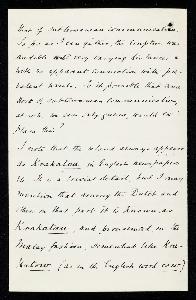 that of subterranean communication.
So far as I can gather, the eruption was
audible with very varying loudness, &
with no apparent connection with pre-
valent winds. Is it possible that some
sort of subterranean communication,
at
place this?
I note that the island always appears
as Krakatoa in English newspapers
&c. It is a trivial detail but I may
mention that among the Dutch and
others in that part it is known as
Krakatau, and pronounced in the
Malay fashion, somewhat like Kra-
katow (as in the English word cow)